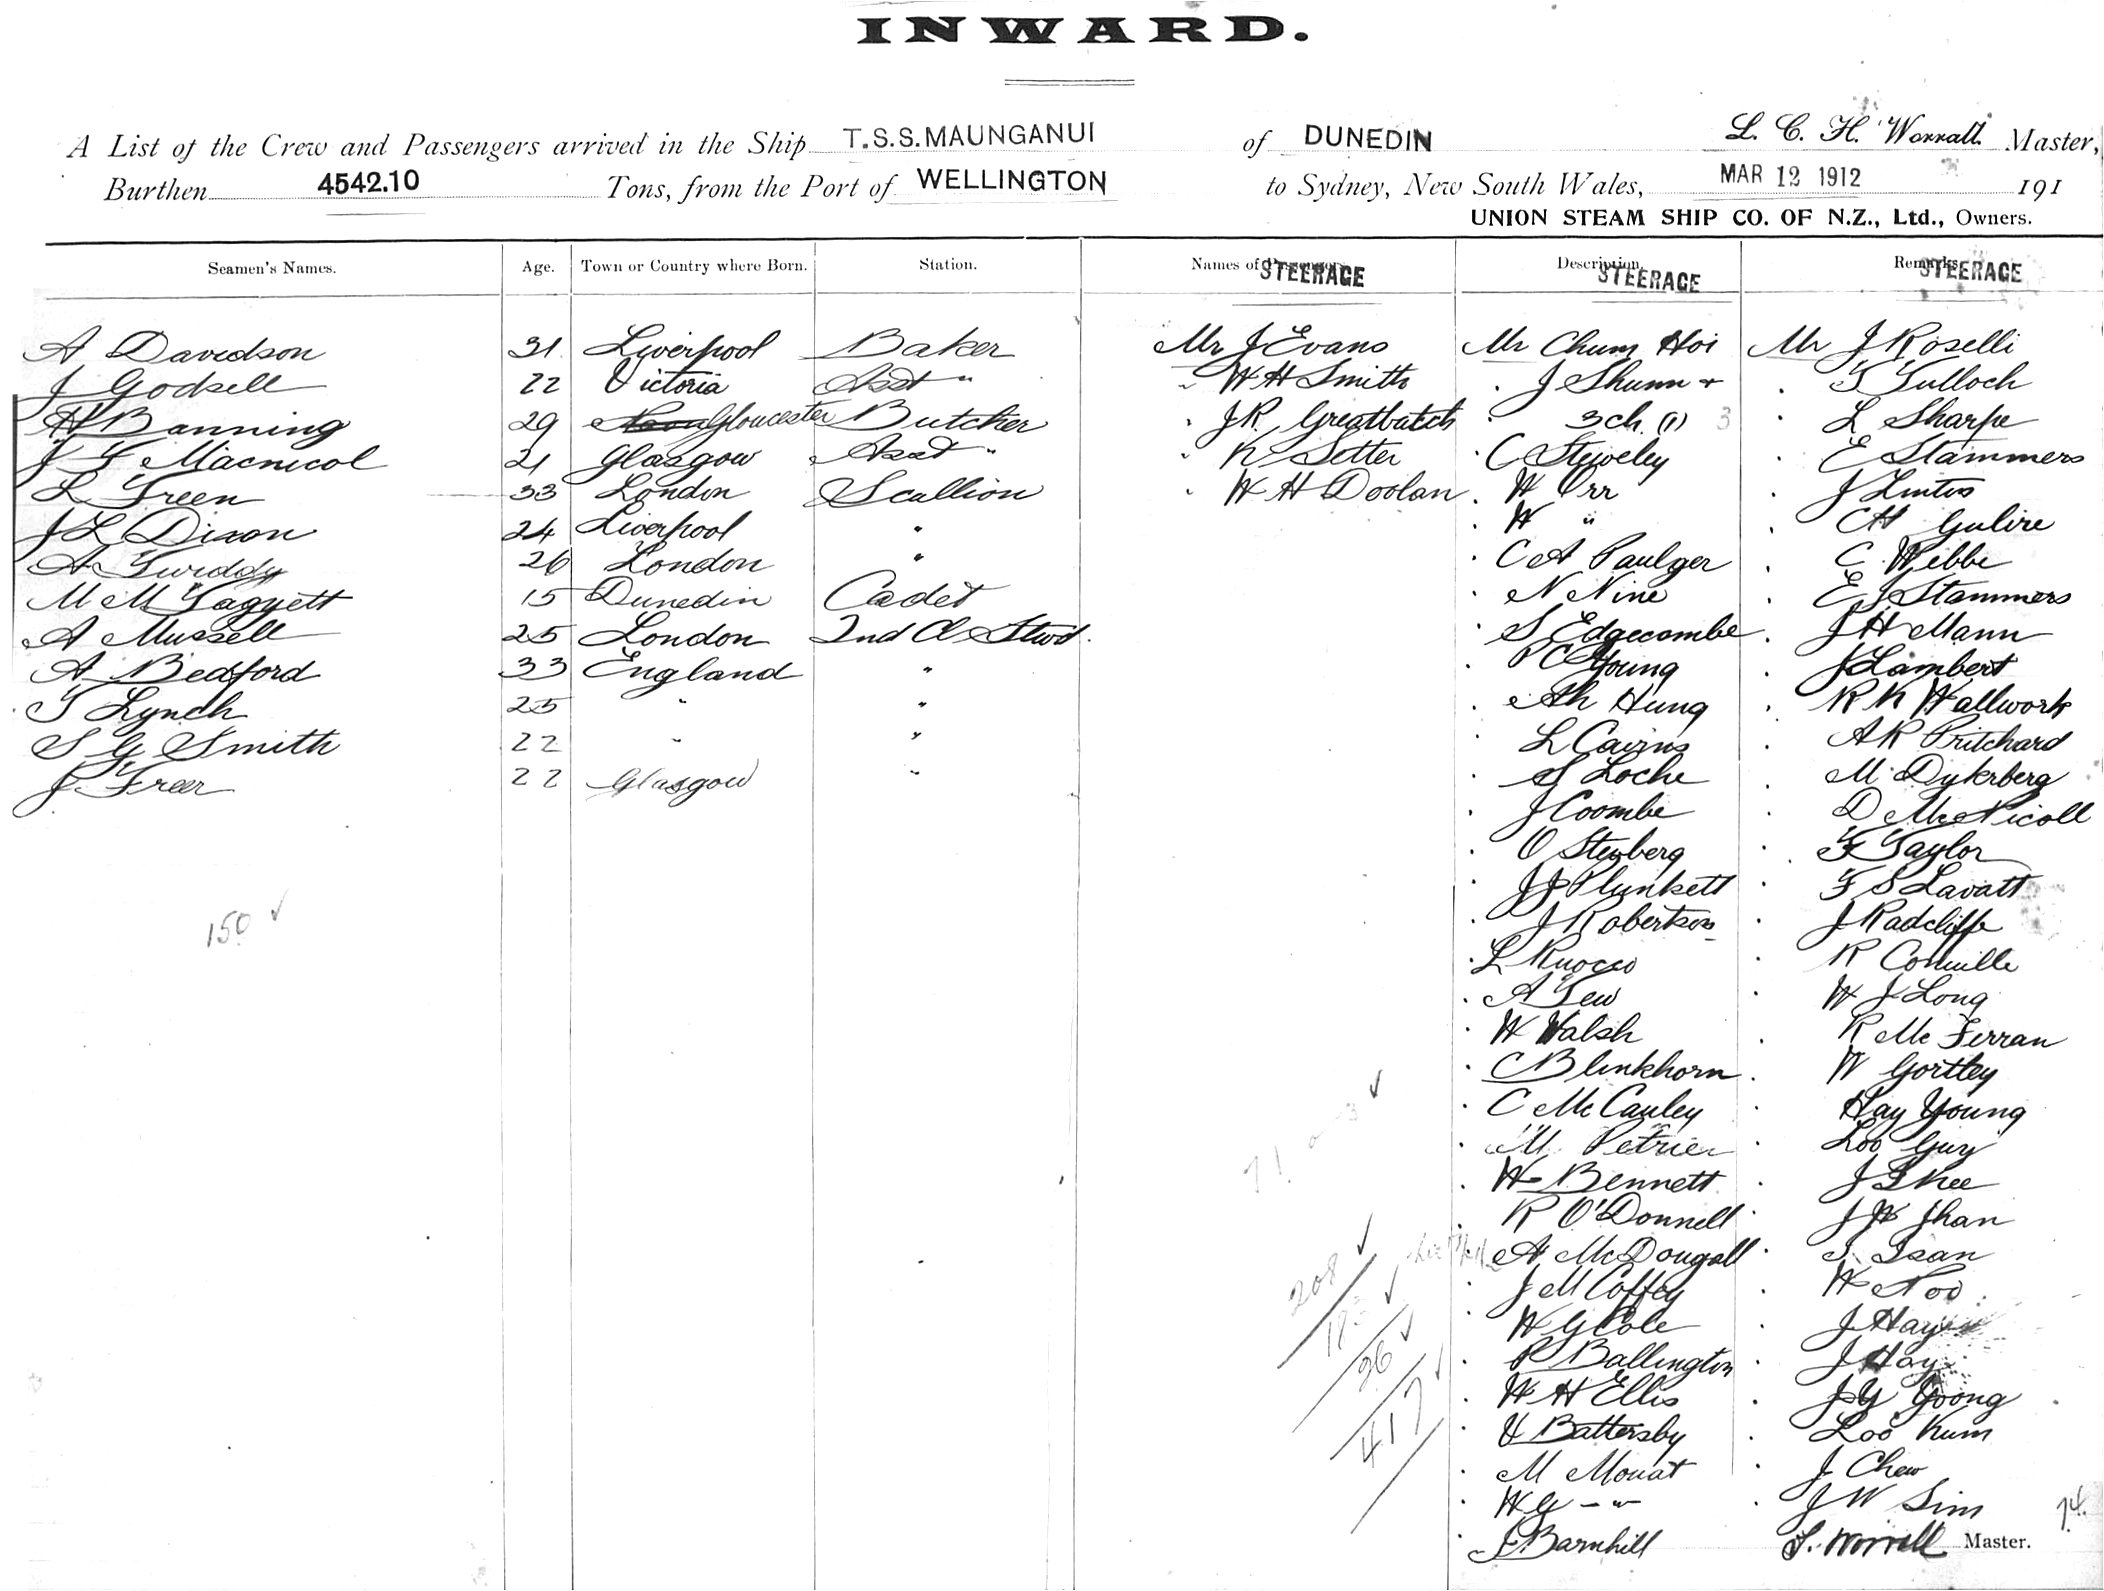 INWARD.
A List of the Crew and Passengers arrived in the Ship T.S.S. MAUNGANUI of DUNEDIN L. C. H. Worrall. Master,
Burthen 4542.10 Tons, from the Port of WELLINGTON to Sydney, New South Wales, MAR 12 1912 191
UNION STEAM SHIP CO. OF N.Z., Ltd., Owners.
Seamen's Names. Age. Town or Country where Born. Station. Names of Passengers STEERAGE Description. STEERAGE Remarks. STEERAGE
A Davidson 31 Liverpool Baker
J Godsell 22 Victoria Asst "
H Banning 29 Gloucester Butcher
J F Macnicol 21 Glasgow Asst "
L Green 33 London Scullion
J L Dixon 24 Liverpool "
A Twiddy 26 London "
M Mc Taggett 15 Dunedin Cadet
A Mussell 25 London 2nd Cl Stwd.
A Bedford 33 England "
T Lynch 25 " "
S G Smith 22 " "
J Freer 22 Glasgow "
150 ✓
Mr J Evans
" W H Smith
" J R Greatbatch
" K Setter
" W H Doolan
71 0 3 ✓
208 ✓
183 ✓
26 ✓
417 ✓
Mr Chum Hoi
J Shunn +
3 ch (1) 3
C Steweley
W Orr
W "
C A Paulger
N Nine
S Edgecombe
P C Young
Ah Hung
L Cairns
S Loche
J Coombe
O Stenberg
J J Plunkett
J Robertson
L Ruocco
A Tew
W Walsh
C Blinkhorn
C McCauley
M Petrie
W Bennett
R O'Donnell
A McDougall
J M Coffey
W G Cole
P Ballington
W H Ellis
H Battersby
M Mouat
W G - " -
J Barnhill
Mr J Roselli
T Tulloch
L Sharpe
E Stammers
J
C H
C Webbe
E J Stammers
J H Mann
J Lambert
R K Wallwork
A R Pritchard
M Dykrberg
D McNicoll
F Taylor
F S Lavatt
J Radcliffe
R Conville
W J Long
R McFerran
W Gortley
Hay Young
Loo Guy
J Shee
J W Jhan
T Isan
W Noo
J Hay
J Hay
J G Yoong
Loo Kum
J Chew
J W Sim
74
L. Worrall Master.